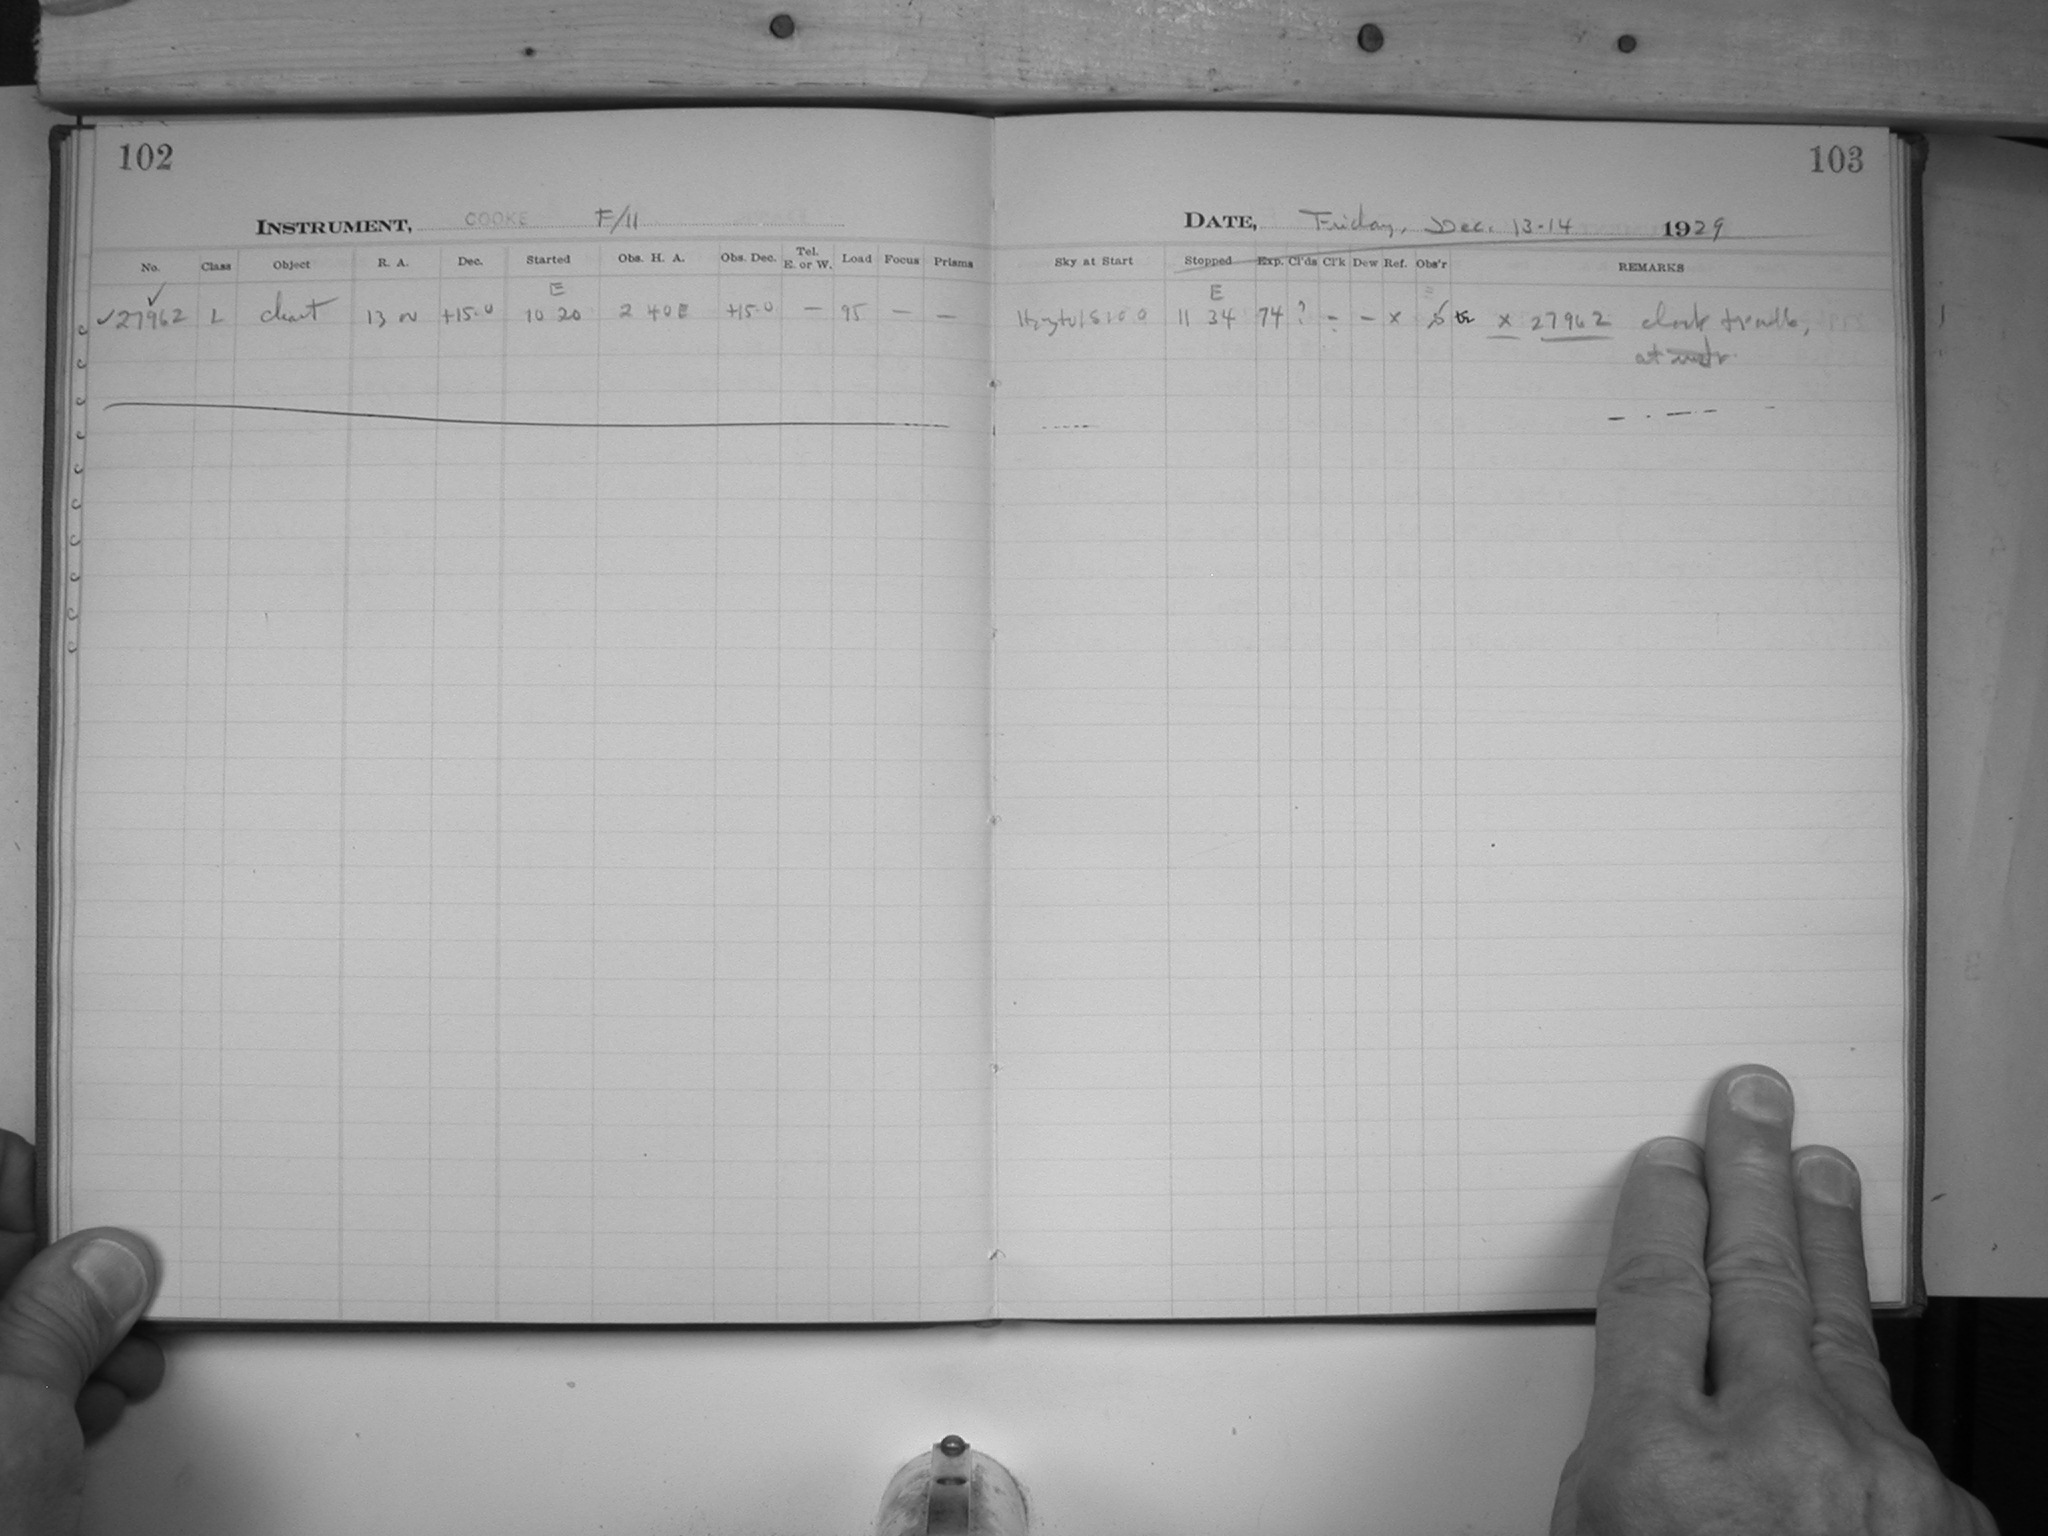 102
103
INSTRUMENT, COOKE F/11
DATE, Friday, Dec. 13-14 1929
No. Class Object R. A. Dec. Started Obs. H. A. Obs. Dec. Tel. E. or W. Load Focus Prisms
Sky at Start Stopped Exp. Cl'ds Cl'k Dew Ref. Obs'r REMARKS
E
E
✓
✓27962 L chart 13 N +15.0 10 20 2 40 E +15.0 — 95 — —
11 34 74 ? - - x x 27962 clock trouble,
at